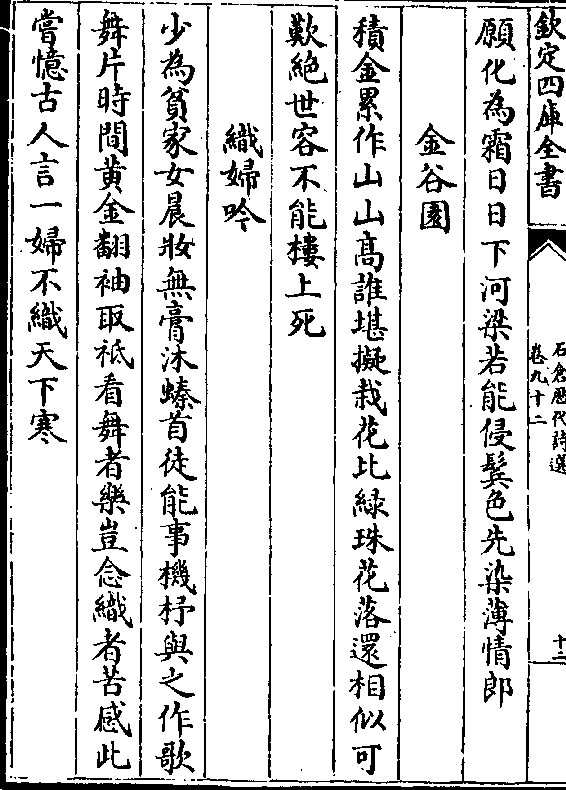 欽定四庫全書
石倉歴代詩選
卷九十二
十二
願化為霜日日下河梁若能侵鬂色先染薄情郎
金谷園
積金累作山山髙誰堪擬栽花比緑珠花落還相似可
歎絶世容不能樓上死
織婦吟
少為貧家女晨妝無膏沐螓首徒能事機杼與之作歌
舞片時間黄金翻袖取祗看舞者樂豈念織者苦感此
嘗憶古人言一婦不織天下寒